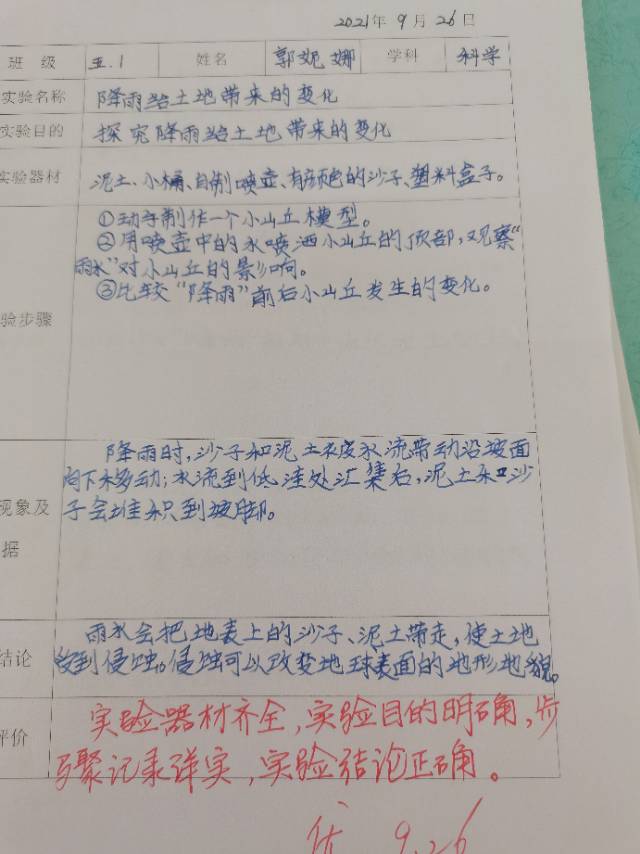 2021年9月26日
班 级 五.1 姓名 郭妮娜 学科 科学
实验名称 降雨给土地带来的变化
实验目的 探究降雨给土地带来的变化
实验器材 泥土、小桶、自制喷壶、有颜色的沙子、塑料盒子。
①动手制作一个小山丘模型。
②用喷壶中的水喷洒小山丘的顶部,观察“
雨水”对小山丘的影响。
③比较“降雨”前后小山丘发生的变化。
验步骤
降雨时,沙子和泥土被水流带动沿坡面
向下移动;水流到低洼处汇集后,泥土和沙
现象及 子会堆积到坡脚。
据
雨水会把地表上的沙子、泥土带走,使土地
结论 受到侵蚀。侵蚀可以改变地球表面的地形地貌。
实验器材齐全,实验目的明确,步
评价 骤记录详实,实验结论正确。
优 9.26